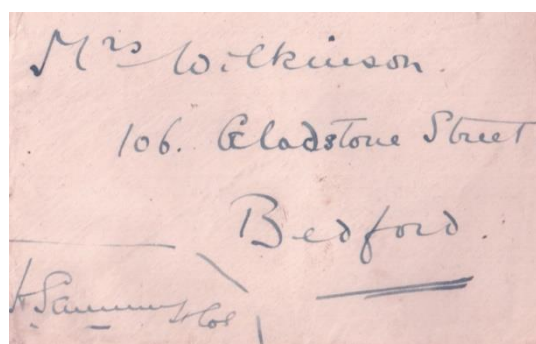 Mrs Wilkinson.
106. Gladstone Street
Bedford.